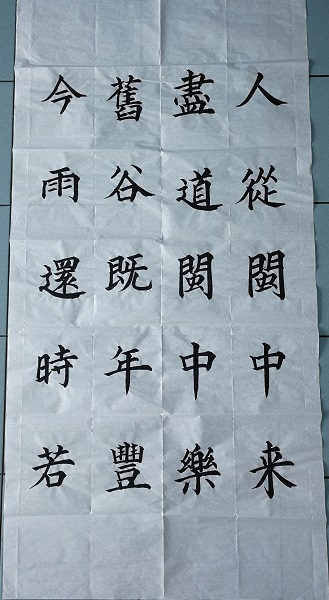 人從閩中来
盡道閩中樂
舊谷既年豐
今雨還時若